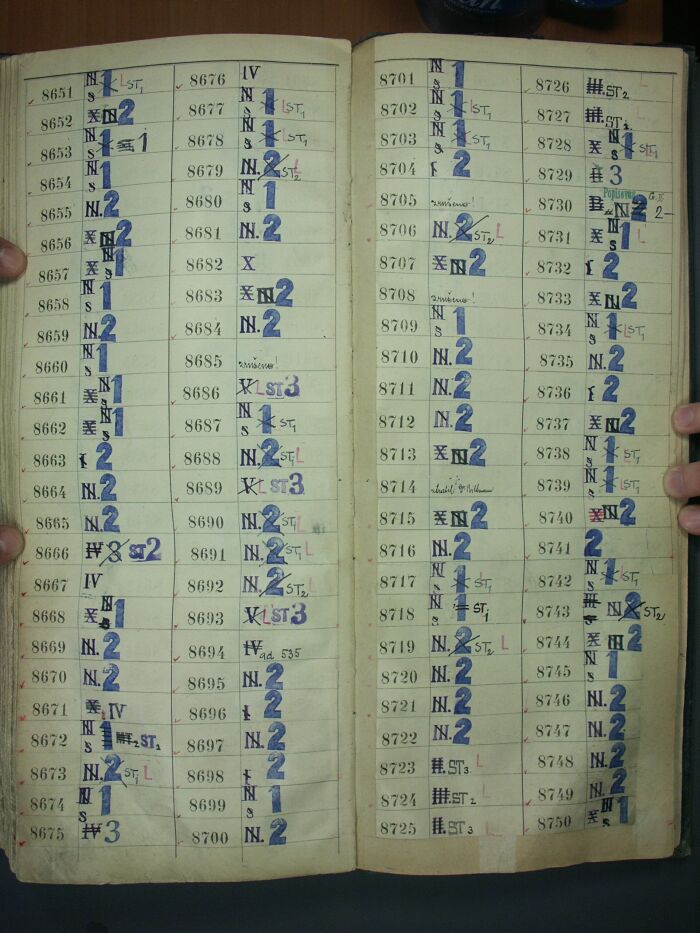 8651 N s 1 L ST1
8652 X N 2
8653 N s 1 1
8654 N s 1
8655 N. 2
8656 X N 2
8657 X N s 1
8658 N s 1
8659 N. 2
8660 N s 1
8661 X N s 1
8662 X N s 1
8663 2
8664 N. 2
8665 N. 2
8666 IV 3 ST2
8667 IV
8668 X N s 1
8669 N. 2
8670 N. 2
8671 X IV
8672 N s 1 ST1
8673 N. 2 ST1 L
8674 N s 1
8675 IV 3
8676 IV
8677 N s 1 L ST1
8678 N s 1 L ST1
8679 N. 2 L ST2
8680 N s 1
8681 N. 2
8682 X
8683 X N 2
8684 N. 2
8685 zrušeno!
8686 V L ST3
8687 N s 1 ST1
8688 N. 2 ST1 L
8689 V L ST3
8690 N. 2 ST1 L
8691 N. 2 ST1 L
8692 N. 2 ST2 L
8693 V L ST3
8694 IV ad 535
8695 N. 2
8696 2
8697 N. 2
8698 2
8699 N s 1
8700 N. 2
8701 N s 1
8702 N s 1 L ST1
8703 N s 1 L ST1
8704 2
8705 zrušeno!
8706 N. 2 ST2 L
8707 X N 2
8708 zrušeno!
8709 N s 1
8710 N. 2
8711 N. 2
8712 N. 2
8713 X N 2
8714
8715 X N 2
8716 N. 2
8717 N s 1 L ST1
8718 N s 1 ST1
8719 N. 2 ST2 L
8720 N. 2
8721 N. 2
8722 N. 2
8723 II. ST3 L
8724 III. ST2 L
8725 II. ST3 L
8726 III. ST2 L
8727 III. ST2
8728 X N s 1 L ST1
8729 II 3
8730 N 2 2-
8731 X N s 1 L
8732 2
8733 X N 2
8734 N s 1 L ST1
8735 N. 2
8736 2
8737 X N 2
8738 N s 1 L ST1
8739 N s 1 L ST1
8740 X N 2
8741 2
8742 N s 1 L ST1
8743 III N. 2 ST2
8744 X N 2
8745 N s 1
8746 N. 2
8747 N. 2
8748 N. 2
8749 N. 2
8750 X N s 1